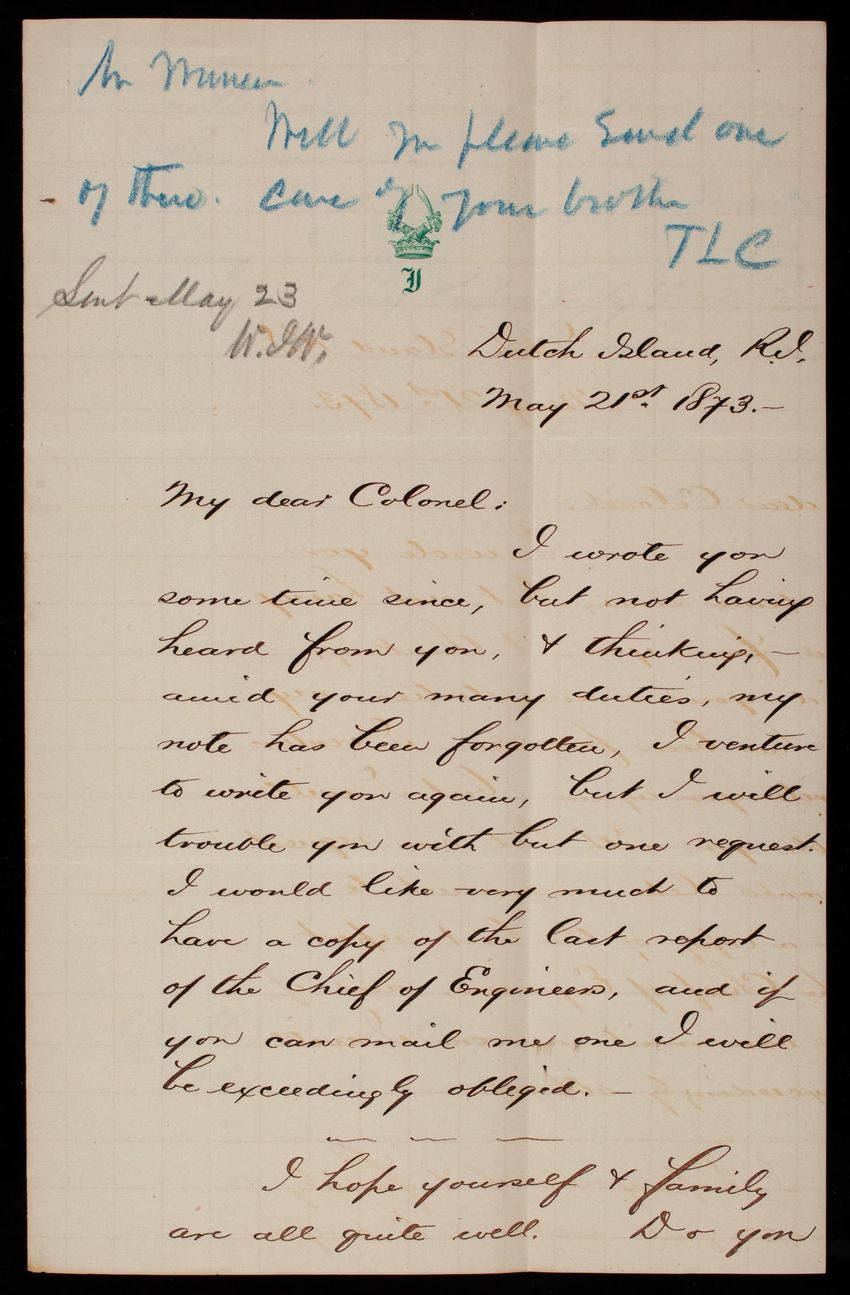 Will you please send one
of these. Care of your brother
TLC
Sent May 23
W.J.W.
J
Dutch Island, R.I.
May 21st. 1873.—
My dear Colonel:
I wrote you
some time since, but not having
heard from you, & thinking, —
amid your many duties, my
note has been forgotten, I venture
to write you again, but I will
trouble you with but one request.
I would like very much to
have a copy of the last report
of the Chief of Engineers, and if
you can mail me one I will
be exceedingly obliged. —
I hope yourself & family
are all quite well. Do you